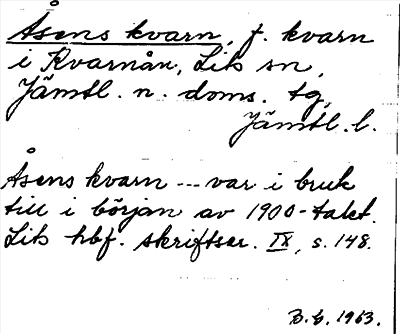 Åsens kvarn, f. kvarn
i Kvarnån, Lits sn,
Jämtl. n. doms. tg,
Jämtl. l.
Åsens kvarn --- var i bruk
till i början av 1900-talet.
Lits hbf. skriftser. IX, s. 148.
B.G. 1963.